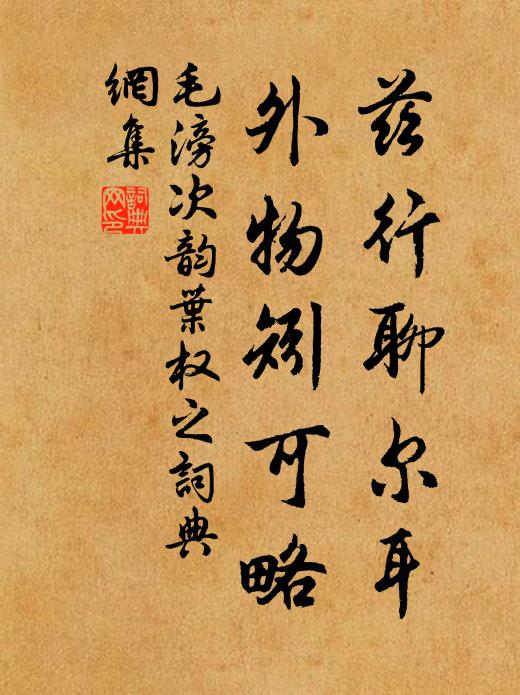 茲行聊尔耳
外物矧可略
毛滂次韵葉权之詞典
網集
詞典网印